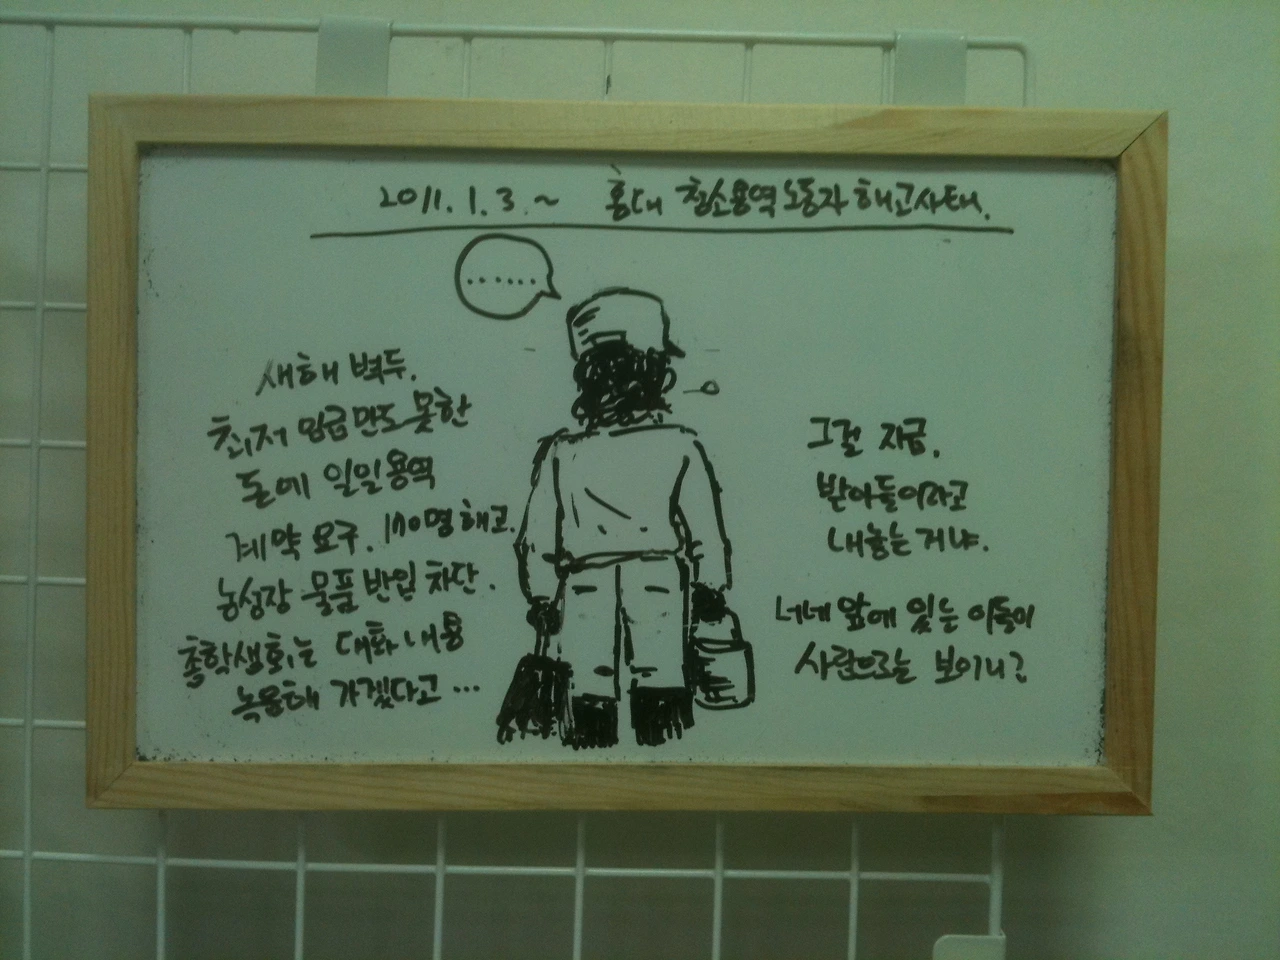 2011. 1. 3. ~ 홍대 청소용역노동자 해고사태.
......
새해 벽두.
최저 임금만도 못한
돈에 일일용역
계약 요구. 170명 해고.
농성장 물품 반입 차단.
총학생회는 대화 내용
녹음해 가겠다고 ...
그걸 지금,
받아들이라고
내놓는 거냐.
너네 앞에 있는 이들이
사람으로는 보이니?